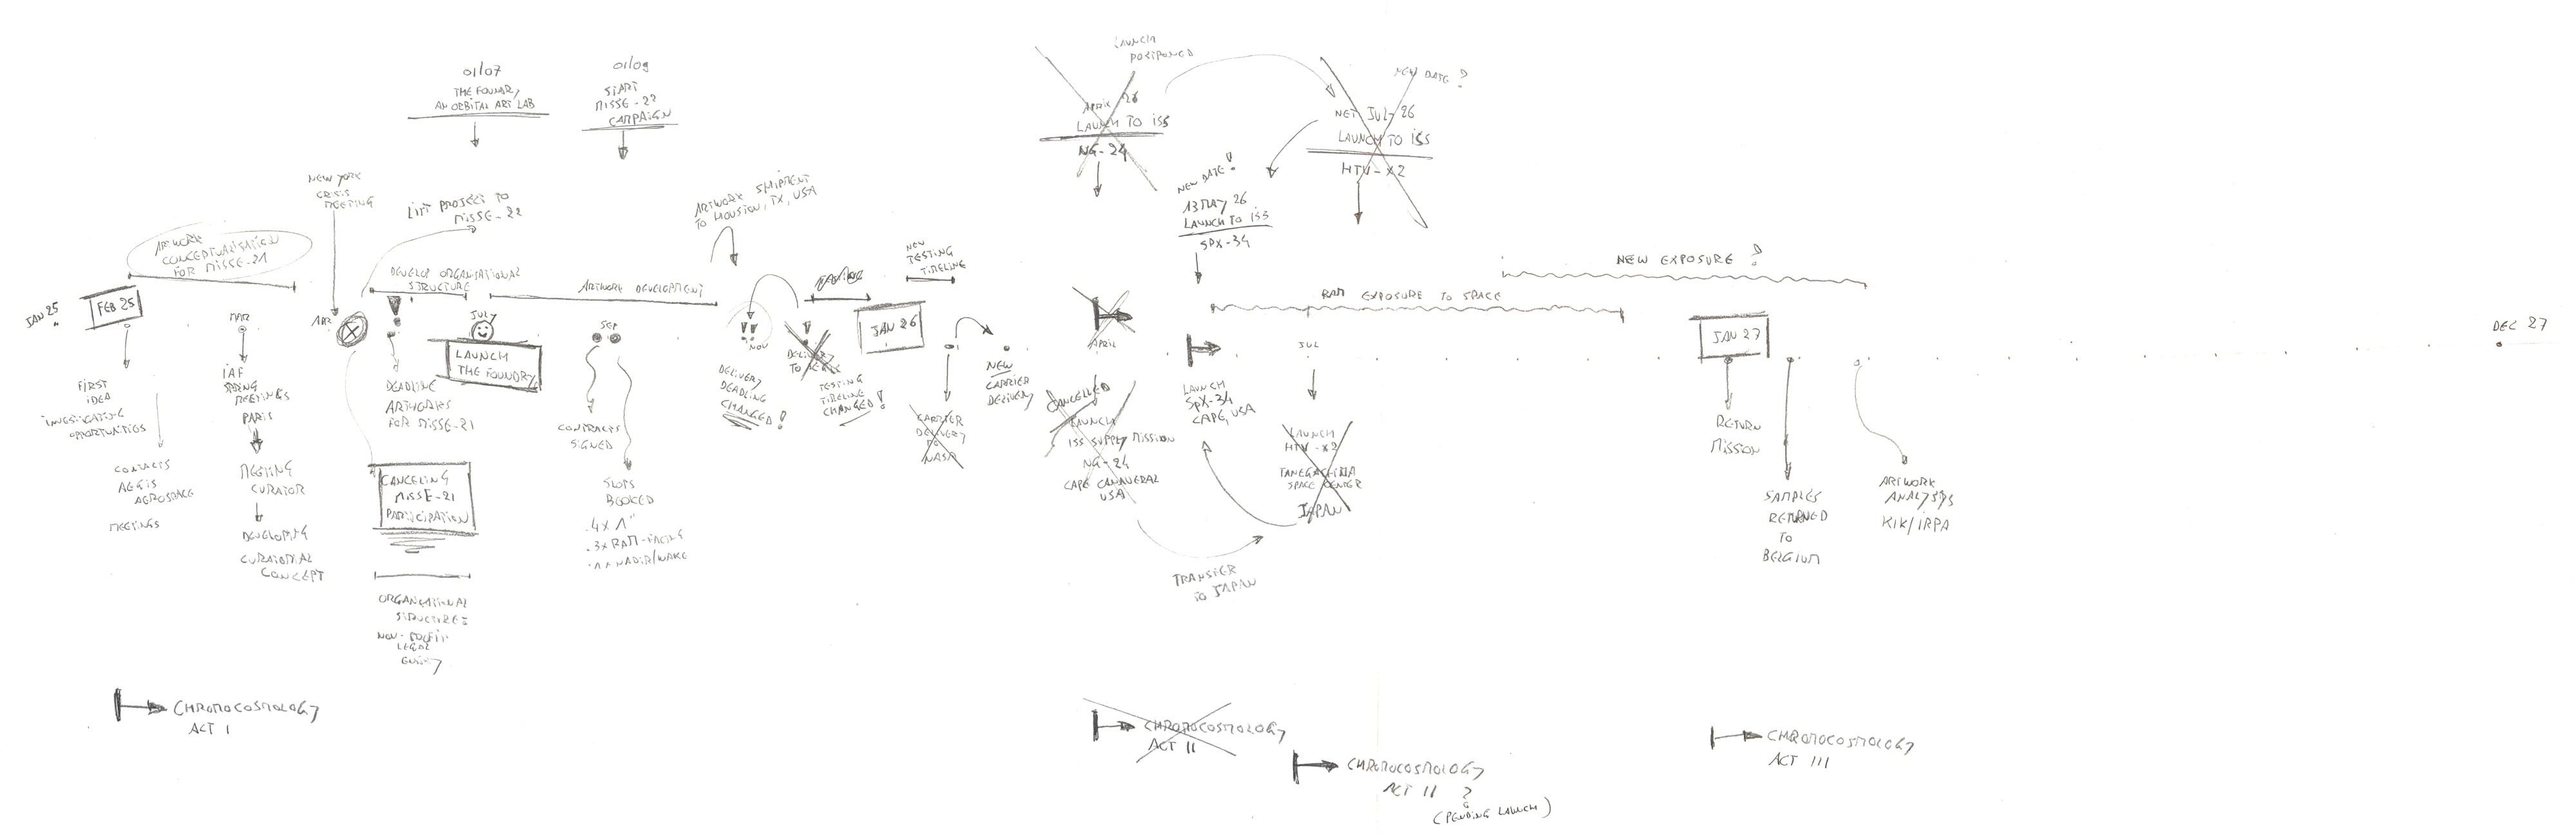 01/07
THE FOUNDRY
AN ORBITAL ART LAB
01/09
START
MISSE-22
CAMPAIGN
LAUNCH
POSTPONED
APRIL 26
LAUNCH TO ISS
NG-24
NEW DATE ?
NET JUL-26
LAUNCH TO ISS
HTV-X2
NEW DATE !
13 MAY 26
LAUNCH TO ISS
SPX-34
NEW YORK
CRISIS
MEETING
LIFT PROJECT TO
MISSE-22
ARTWORK SHIPMENT
TO HOUSTON, TX, USA
ARTWORK
CONCEPTUALISATION
FOR MISSE-21
DEVELOP ORGANISATIONAL
STRUCTURE
ARTWORK DEVELOPMENT
NEW
TESTING
TIMELINE
NEW EXPOSURE ?
RAM EXPOSURE TO SPACE
JAN 25
FEB 25
MAR
APR
JULY
LAUNCH
THE FOUNDRY
SEP
NOV
DELIVERY
TO AEGIS
JAN 26
APRIL
JUL
JAN 27
DEC 27
FIRST
IDEA
INVESTIGATING
OPPORTUNITIES
CONTACTS
AEGIS
AEROSPACE
MEETINGS
IAF
SPRING
MEETINGS
PARIS
MEETING
CURATOR
DEVELOPING
CURATORIAL
CONCEPT
DEADLINE
ARTWORKS
FOR MISSE-21
CANCELING
MISSE-21
PARTICIPATION
ORGANISATIONAL
STRUCTURE:
NON-PROFIT
LEGAL
ENTITY
CONTRACTS
SIGNED
SLOTS
BOOKED
.4x 1"
.3x RAM-FACING
.1x NADIR/WAKE
DELIVERY
DEADLINE
CHANGED !
TESTING
TIMELINE
CHANGED !
CARRIER
DELIVERY
TO
NASA
NEW
CARRIER
DELIVERY
CANCELLED
LAUNCH
ISS SUPPLY MISSION
NG-24
CAPE CANAVERAL
USA
LAUNCH
SPX-34
CAPE, USA
LAUNCH
HTV-X2
TANEGASHIMA
SPACE CENTER
JAPAN
TRANSFER
TO JAPAN
RETURN
MISSION
SAMPLES
RETURNED
TO
BELGIUM
ARTWORK
ANALYSIS
KIK/IRPA
CHROMOCOSMOLOGY
ACT I
CHROMOCOSMOLOGY
ACT II
CHROMOCOSMOLOGY
ACT II ?
(PENDING LAUNCH)
CHROMOCOSMOLOGY
ACT III